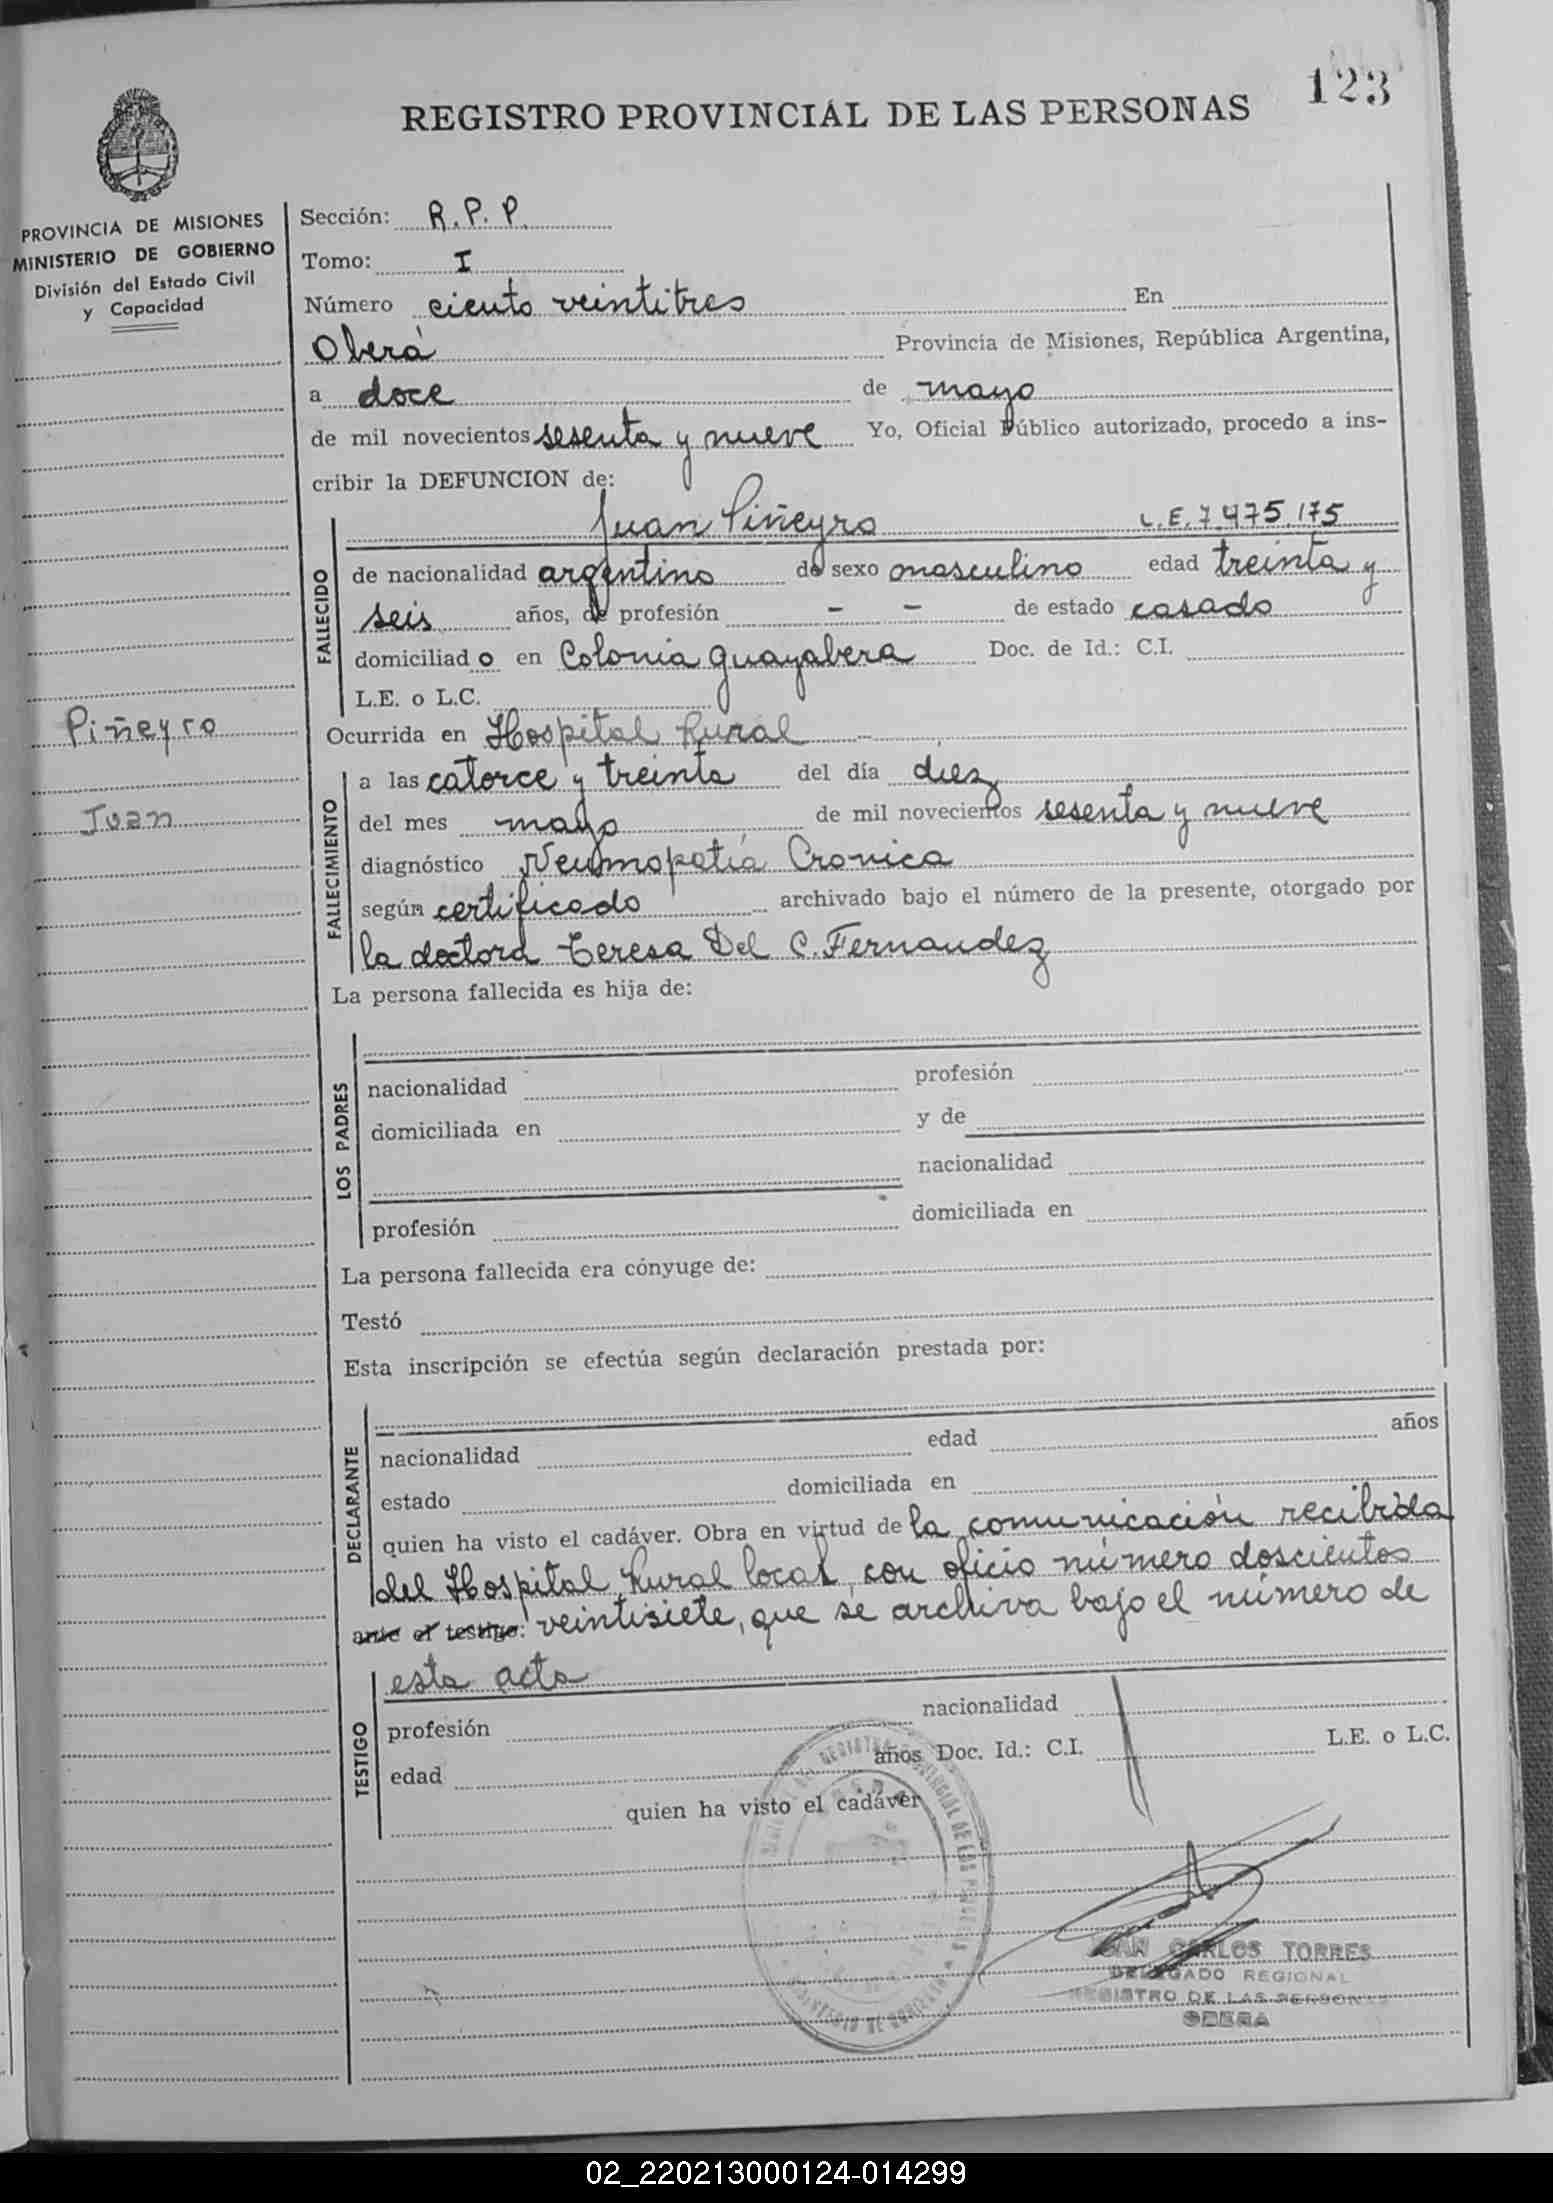 123
REGISTRO PROVINCIAL DE LAS PERSONAS
PROVINCIA DE MISIONES
MINISTERIO DE GOBIERNO
División del Estado Civil
y Capacidad
Sección: R.P.P.
Tomo: I
Número ciento veintitres En
Oberá Provincia de Misiones, República Argentina,
a doce de mayo
de mil novecientos sesenta y nueve Yo, Oficial Público autorizado, procedo a ins-
cribir la DEFUNCION de:
Juan Piñeyro L.E. 7.475.175
FALLECIDO
de nacionalidad argentino de sexo masculino edad treinta y
seis años, de profesión - - de estado casado
domiciliado en Colonia Guayabera Doc. de Id.: C.I.
L.E. o L.C.
Piñeyro
Juan
Ocurrida en Hospital Rural
FALLECIMIENTO
a las catorce y treinta del día diez
del mes mayo de mil novecientos sesenta y nueve
diagnóstico Neumopatía Cronica
según certificado archivado bajo el número de la presente, otorgado por
la doctora Teresa Del C. Fernandez
La persona fallecida es hija de:
LOS PADRES
nacionalidad profesión
domiciliada en y de
nacionalidad
profesión domiciliada en
La persona fallecida era cónyuge de:
Testó
Esta inscripción se efectúa según declaración prestada por:
DECLARANTE
nacionalidad edad años
estado domiciliada en
quien ha visto el cadáver. Obra en virtud de la comunicación recibida
del Hospital Rural local, con oficio número doscientos
ante el testigo: veintisiete, que se archiva bajo el número de
esta acta
TESTIGO
profesión nacionalidad
edad años Doc. Id.: C.I. L.E. o L.C.
quien ha visto el cadáver
CARLOS TORRES
DELEGADO REGIONAL
REGISTRO DE LAS PERSONAS
OBERA
02_220213000124-014299